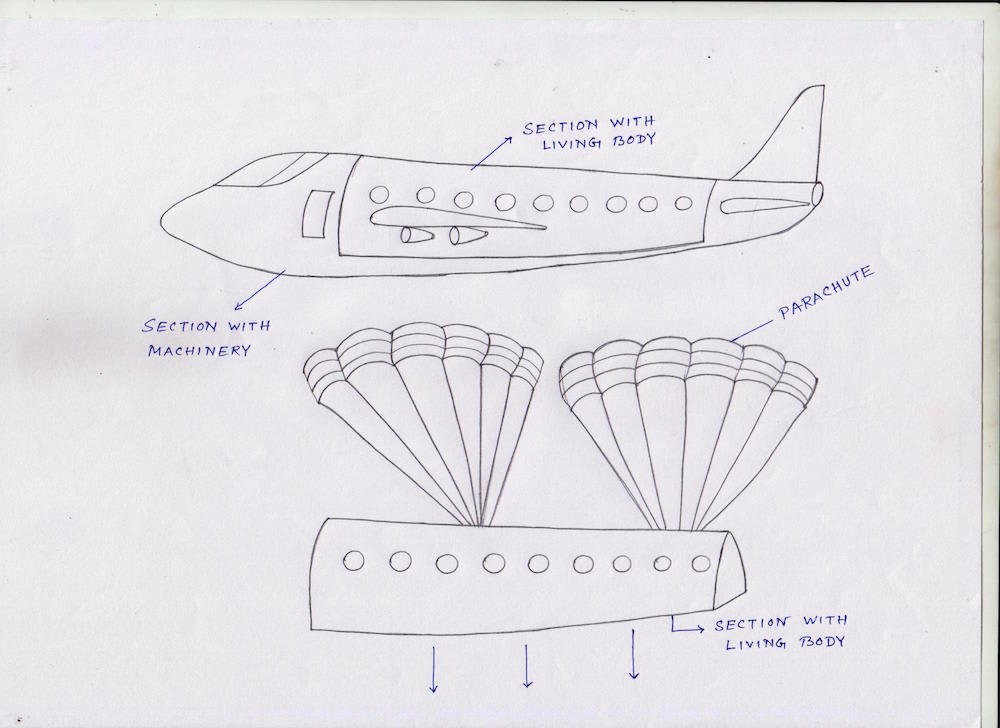 SECTION WITH
LIVING BODY
SECTION WITH
MACHINERY
PARACHUTE
SECTION WITH
LIVING BODY